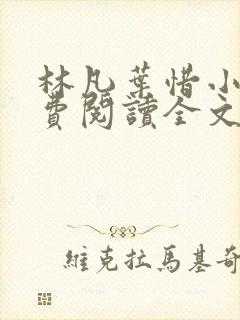 林凡葉惜小
費閱讀全文
維克拉馬基奇